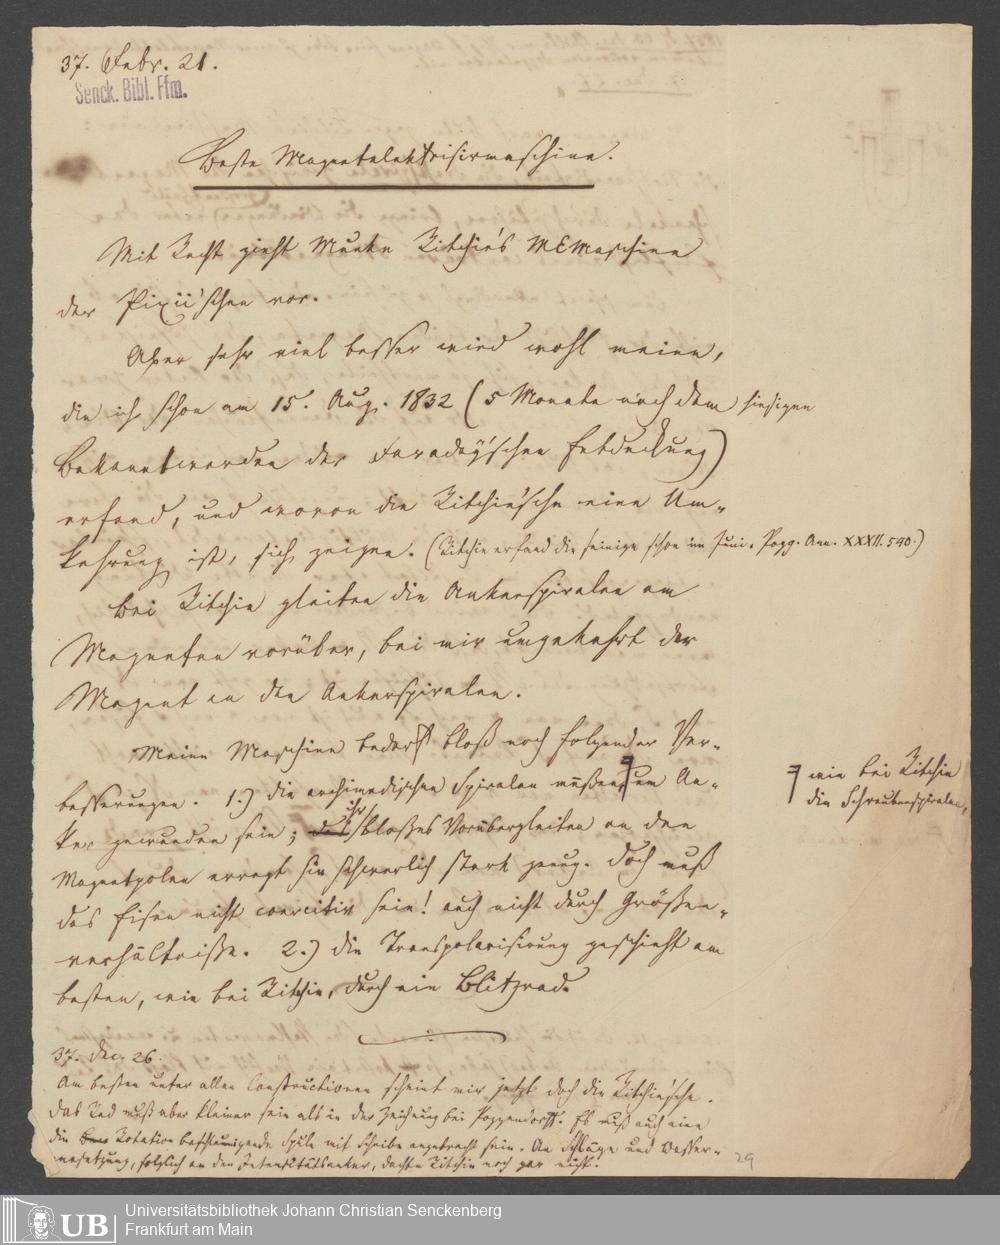 37. Febr. 21.
Senck. Bibl. Ffm.
Beste Magnetelektrisirmaschine.
Mit Recht zieht Muncke Ritchie's MEMaschine
der Pixii'schen vor.
Aber sehr viel besser wird wohl meine,
die ich schon am 15. Aug. 1832 (5 Monate nach dem hiesigen
Bekanntwerden der Faraday'schen Entdeckung)
erfand, und wovon die Ritchie'sche eine Um-
kehrung ist, sich zeigen. (Ritchie erfand die seinige schon im Juni. Pogg. Ann. XXXII. 540.)
Bei Ritchie gleiten die Ankerspiralen am
Magneten vorüber, bei mir umgekehrt der
Magnet an den Ankerspiralen.
Meine Maschine bedarf bloß noch folgender Ver-
besserungen. 1.) die archimedischen Spiralen müßen um An-
wie bei Ritchie
die Schraubenspiralen,
ker gewunden sein; ihr bloßes Vorübergleiten an den
Magnetpolen erregt sie schwerlich stark genug. Doch muß
das Eisen nicht coercitiv sein! auch nicht durch Größen-
verhältniße. 2.) die Transpolarisirung geschieht am
besten, wie bei Ritchie, durch ein Blitzrad.
37. Dec. 26.
Am besten unter allen Constructionen scheint mir jetzt doch die Ritchie'sche.
Das Rad muß aber kleiner sein als in der Zeichnung bei Poggendorff. Es muß auch eine
die Rotation beschleunigende Spule mit Scheibe angebracht sein. An Schläge und Wasser-
zersetzung, folglich an den Intensitätsanker, dachte Ritchie noch gar nicht.
29
UB
Universitätsbibliothek Johann Christian Senckenberg
Frankfurt am Main